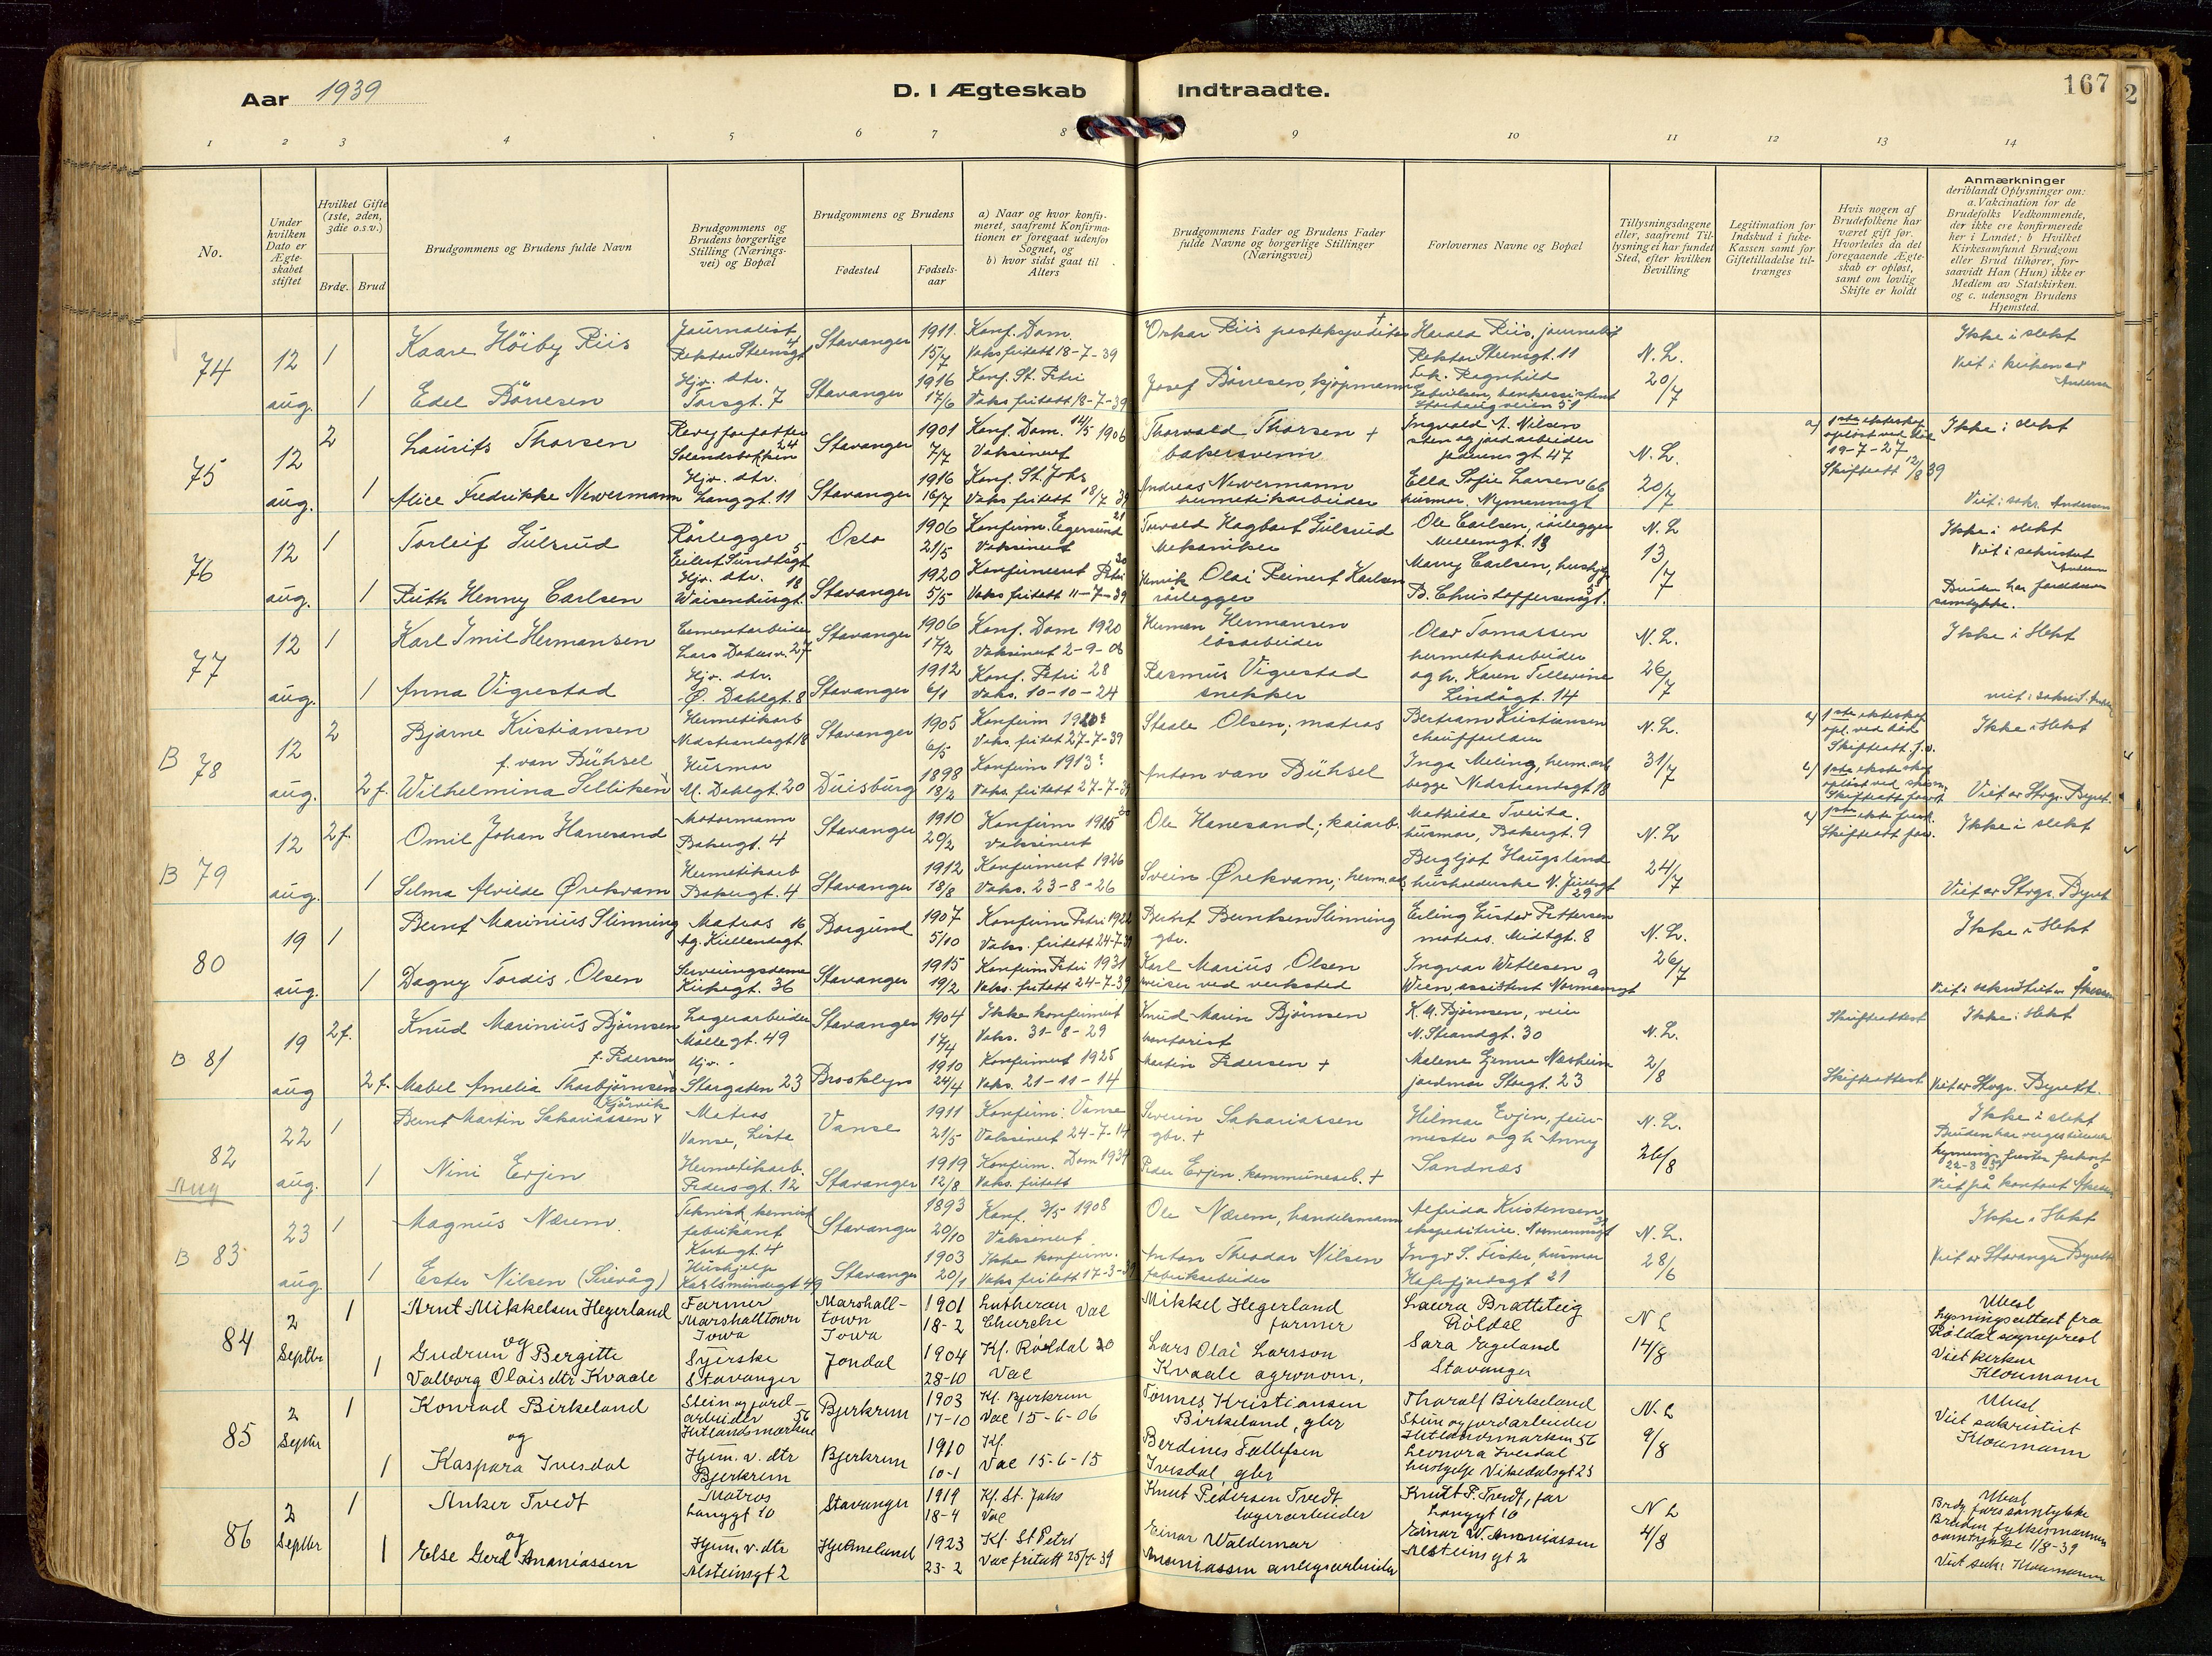 Aar 1939
D. I Ægteskab Indtraadte.
167
2
1 2 3 4 5 6 7 8 9 10 11 12 13 14
No.
Under hvilken Dato er Ægteskabet stiftet
Hvilket Gifte (1ste, 2den, 3die o.s.v.)
Brdg. Brud
Brudgommens og Brudens fulde Navn
Brudgommens og Brudens borgerlige Stilling (Næringsvei) og Bopæl
Brudgommens og Brudens
Fødested
Fødselsaar
a) Naar og hvor konfirmeret, saafremt Konfirmationen er foregaat udenfor Sognet, og
b) hvor sidst gaat til Alters
Brudgommens Fader og Brudens Fader fulde Navne og borgerlige Stillinger (Næringsvei)
Forlovernes Navne og Bopæl
Tillysningsdagene eller, saafremt Tillysning ei har fundet Sted, efter hvilken Bevilling
Legitimation for Indskud i fuke-Kassen samt for Giftetilladelse tiltrænges
Hvis nogen af Brudefolkene har været gift før. Hvorledes da det foregaaende Ægteskab er opløst, samt om lovlig Skifte er holdt
Anmærkninger
deriblandt Oplysninger om: a. Vakcination for de Brudefolks Vedkommende, der ikke ere konfirmerede her i Landet; b Hvilket Kirkesamfund Brudgom eller Brud tilhører, forsaavidt Han (Hun) ikke er Medlem av Statskirken. og c. udensogn Brudens Hjemsted.
74 12 aug. 1 Kaare Höiby Riis Journalist Rektor Steensgt 4 Stavanger 1911 15/7 Konf. Dom. Vaks fritatt 18-7-39 Oskar Riis postekspeditør + Harald Riis, journalist Rektor Steensgt. 11 N.L. 20/7 Ikke i slekt
1 Edel Börresen Hjv. dtr. Torsgt. 7 Stavanger 1916 17/6 Konf. St. Petri Vaks fritatt 18-7-39 Josef Börresen, kjöpmann Frk. Ragnhild bankassistent Viet i kirken av Andersen
75 12 aug. 2 Laurits Thorsen 24 Stavanger 1901 7/7 Konf. Dom. 14/5 1906 Vaksinert Thorvald Thorsen + bakersvenn Ingvald A. Nilsen sten og jordarbeider gt. 47 N.L. 20/7 a) 1ste ekteskap oplöst ved död 19-7-27 Skifteatt 12/8 39 Ikke i slekt
1 Alice Fredrikke Newermann Hjv. dtr. Langgt. 11 Stavanger 1916 16/7 Konf. St. Johs Vaks fritatt 18/7 39 Andreas Newermann hermetikarbeider Ella Sofie Larsen 66 husmor, Nymannsgt Viet i sakr. Andersen
76 12 aug. 1 Torleif Gulsrud Rörlegger Eilert Sundtsgt 5 Oslo 1906 21/5 Konfirm. Egersund 21 Vaksinert Torvald Hagbart Gulsrud Mekaniker Ole Carlsen, rörlegger Mellemgt. 13 N.L 13/7 Ikke i slekt Viet i sakristiet Andersen
1 Ruth Henny Carlsen Hjv. dtr. Waisenhusgt. 18 Stavanger 1920 5/5 Konfirmert Petri Vaks fritatt 11-7-39 Henrik Olai Reinert Karlsen rörlegger Merry Carlsen, B. Christoffersensgt. Bruden har samtykke.
77 12 aug. 1 Karl Imil Hermansen Cementarbeider Lars Dahlesv. 27 Stavanger 1906 17/2 Konf. Dom 1920 Vaksinert 2-9-06 Herman Hermansen lösarbeider Olav Tomassen hermetikarbeider N.L. 26/7 Ikke i slekt
1 Anna Vigrestad Hjv. dtr. Ø. Dahlsgt. 8 Stavanger 1912 6/1 Konf. Petri 28 Vaks. 10-10-24 Rasmus Vigrestad snekker og h. Karen Lindågt. 14
B 78 12 aug. 2 Bjarne Kristiansen Hermetikarb Nedstrandsgt 18 Stavanger 1905 6/5 Konfirm Vaks. fritat 27-7-39 Staale Olsen, matros Bertram Kristiansen N.L. 31/7 a) 1ste ekteskap opl. ved död Skifteatt. f.v. Ikke i slekt
2 f. Wilhelmina Selliken f. van Bühsel Husmor M. Dahlgt. 20 Duisburg 1898 18/2 Konfirm 1913? Vaks. fritatt 27-7-39 Anton van Bühsel Inga Meling, herm.arb begge Nedstrandsgt. 18 Viet av Stvgr. Byret.
B 79 12 aug. 2 f. Omil Johan Hanesand Motormann Bakergt. 4 Stavanger 1910 20/2 Konfirm Vaksinert Ole Hanesand, kaiarb. Mathilde Tveita husmor, Bakergt. 9 N.L 24/7 Ikke i slekt
1 Selma Alvilde Ørekvam Hermetikarb Bakergt. 4 Stavanger 1912 18/8 Konfirmert 1926 Vaks. 23-8-26 Svein Ørekvam, herm.arb Bergljot Haugsland husholderske Viet av Stvgr. Byret
80 19 aug. 1 Bernt Marinius Slinning Matros Ag. Kiellandsgt. 16 Borgund 1907 5/10 Konfirm Petri 1922 Vaks. fritatt 24-7-39 Bernt Berntsen Slinning gbr. Erling Gustav Pettersen matros. Midtgt. 8 N.L. 26/7 Ikke i slekt
1 Dagny Tordis Olsen Serveringsdame Kirkegt. 36 Stavanger 1915 19/2 Konfirm Petri 1931 Vaks. fritatt 24-7-39 Karl Marius Olsen Ingvar Wien, assistent
B 81 19 aug 2 f. Knud Marinius Björnsen Lagerarbeider Möllegt. 49 Stavanger 1904 17/4 Ikke konfirmert Vaks. 31-8-29 Knud Marin Björnsen kontorist K. M. Björnsen, N. Strandgt. 30 N.L. 2/8 Skifteattest Ikke i slekt
2 f. Mabel Amelia Thorbjörnsen f. Pedersen Hjv. Storgaten 23 Brooklyn 1910 24/4 Konfirmert 1925 Vaks. 21-11-14 Martin Pedersen + Malene Næsheim jordmor Storgt. 23 Skifteattest Viet av Stvgr. Byrett.
82 22 aug. 1 Bernt Martin Sakariassen Matros Vanse, Lista Vanse 1911 21/5 Konfirm: Vanse Vaksinert 24-7-14 Severin Sakariassen gbr. + Hilmar Evjen, feiermester og h Anny Sandnes N.L. 26/8 Ikke i slekt
Aug
1 Nini Evjen Hermetikarb. Pedersgt. 12 Stavanger 1919 12/8 Konfirm. Dom 1934 Vaks. fritatt Peder Evjen kommunearb. + Viet på kontoret
B 83 23 aug. 1 Magnus Nærem Teknisk kemisk fabrikant gt. 4 Stavanger 1893 20/10 Konf. 3/5 1908 Vaksinert Ole Nærem, handelsmann Alfrida Kristensen N.L. 28/6 Ikke i slekt
1 Ester Nilsen (Sirevåg) Hushjelp Karlsminnegt 49 Stavanger 1903 20/1 Ikke konfirm. Vaks fritatt 17-3-39 Anton Theodor Nilsen fabrikarbeider Ingv S. Fister, husmor Hafrsfjordsgt 21 Viet av Stavanger Byrett
84 2 Septbr 1 Arnt Mikkelsen Hegerland Farmer Marshalltown Iowa Marshalltown Iowa 1901 18-2 Lutheran Church Vac Mikkel Hegerland farmer Laura Bratteteig Röldal N L 14/8 Ubesl Lysningsattest fra Röldal sogneprest
og
1 Gudrun Bergitte Valborg Olaisdtr Kvaale Syerske Stavanger Jondal 1904 28-10 Kf. Röldal 20 Vac Lars Olai Larsson Kvaale agronom, Sara Egeland Stavanger Viet kirken Kloumann
85 2 Septbr 1 Konrad Birkeland Stein og jordarbeider Hetlandsmarken 56 Bjerkreim 1903 17-10 Kf. Bjerkrem Vac 15-6-06 Tönnes Kristiansen Birkeland, gbr Tharalf Birkeland Stein og jordarbeider Hetlandsmarken 56 N.L 9/8 Ubesl Viet sakristiet Kloumann
og
1 Kaspara Ivesdal Hjem. v. dtr Bjerkrem Bjerkrem 1910 10-1 Kf. Vac 15-6-15 Berdines Tollefsen Ivesdal, gbr Leonora Ivesdal hushjelp Vikedalsgt 23
86 2 Septbr 1 Anker Tvedt Matros Langgt 10 Stavanger 1919 18-4 Kf. St. Johs Vac Knut Pedersen Tvedt lagerarbeider Knut P. Tvedt, far Langgt 10 N L 4/8 Ubesl Brdg fars samtykke
og
1 Else Gerd Ananiassen Hjem. v. dtr Alsteinsgt 2 Hjelmeland 1923 23-2 Kf. St Petri Vac fritatt 25/7-39 Einar Waldemar Ananiassen anlegsarbeider Einar W. Ananiassen Alsteinsgt 2 Bruden fylkesmannens samtykke 1/8-39 Viet sakr. Kloumann